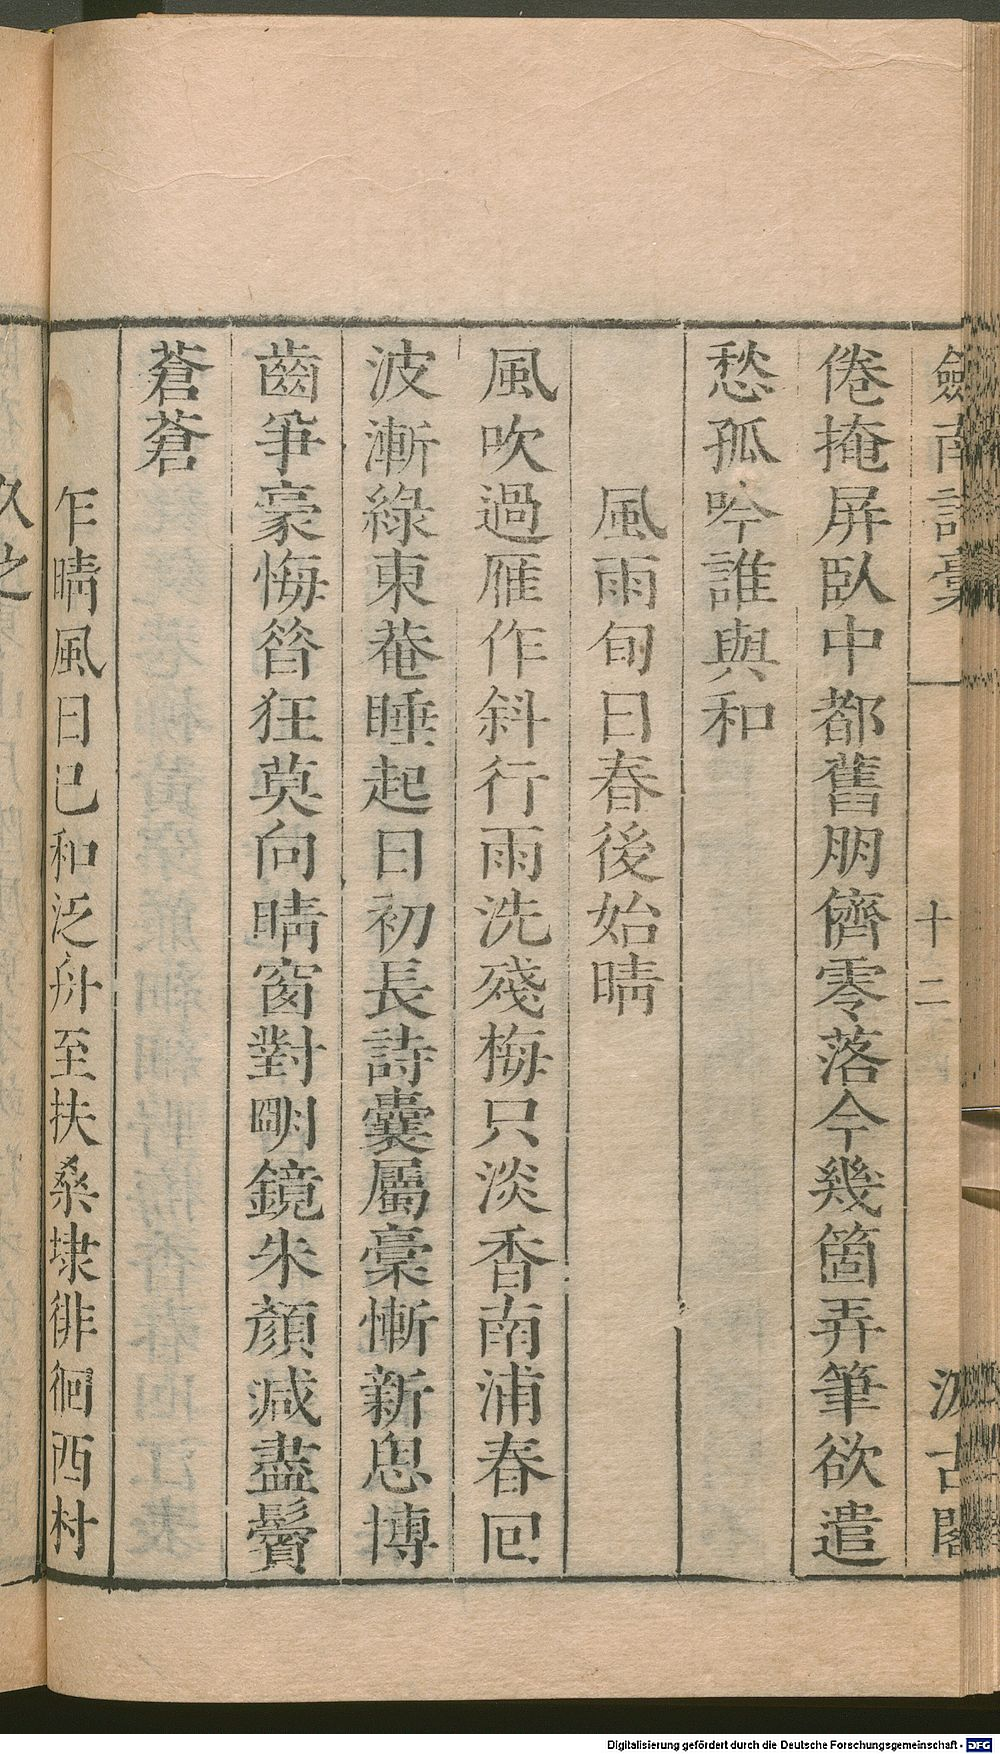 劒南詩稾 十二 汲古閣
倦掩屏臥中都舊朋儕零落今幾箇弄筆欲遣
愁孤吟誰與和
風雨旬日春後始晴
風吹過雁作斜行雨洗殘梅只淡香南浦春囘
波漸綠東菴睡起日初長詩囊屬稾慚新思博
齒爭豪悔昔狂莫向晴窗對眀鏡朱顏減盡鬢
蒼蒼
乍晴風日已和泛舟至扶桑埭徘徊西村
久之
Digitalisierung gefördert durch die Deutsche Forschungsgemeinschaft - DFG